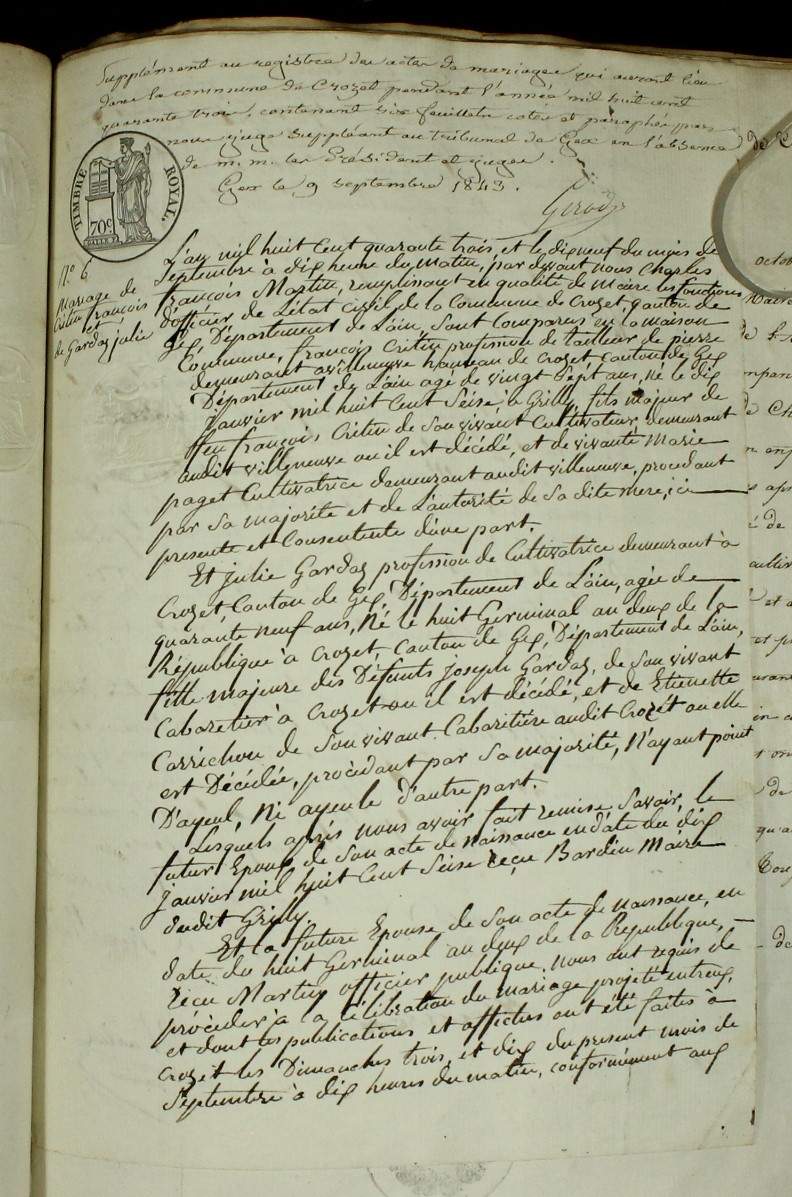 Supplément au registre des actes de mariages qui auront lieu
dans la commune de Crozet pendant l'année mil huit cent
quarante trois, contenant six feuillets cotés et paraphés par
nous juge suppléant au tribunal de Gex en l'absence
de m. m. les Président et juges.
Gex le 9 septembre 1843.
Girod
TIMBRE ROYAL.
70c
N° 6
Mariage de
Critin françois
et
de Gardaz julie
L'an mil huit Cent quarante trois, et le dix neuf du mois de
Septembre à dix heure du matin, par devant nous Charles
françois Martin, remplissant en qualité de Maire les fonctions
d'officier de L'état civil de la Commune de Crozet, canton de
Gex, Département de Lain, Sont Comparus en la maison
Commune, françois Critin profession de tailleur de pierre
demeurant a villeneuve hameau de Crozet canton de Gex
Département de Lain agé de vingt Sept ans, Né le dix
janvier mil huit Cent Seise à Grilly, fils majeur de
feu françois Critin de Son vivant Cultivateur demeurant
audit villeneuve ou il est décédé, et de vivante Marie
paget Cultivatrice demeurant audit villeneuve, procedant
par Sa majorité et de L'autorité de Sa dite mere, ici
presente et Consentente d'une part.
Et julie Gardaz profession de Cultivatrice demeurant à
Crozet, Canton de Gex, Département de Lain, agée de
quarante neuf ans, Né le huit Germinal an deux de la
République à Crozet, Canton de Gex, Département de Lain,
fille majeure des Défunts joseph Gardaz, de Son vivant
Cabaretier à Crozet ou il est décédé, et de Etienette
Carrichon de Son vivant Cabaretière audit Crozet ou elle
est Décédée, procèdant par Sa majorité, N'ayant point
D'ayeul, Ni ayeule d'autre part.
Lesquels après nous avoir fait remise Savoir, le
futur Epoux, de Son acte de naissance en date du dix
janvier mil huit Cent Seise reçu Bardin Maire
dudit Grilly.
Et la future Epouse, de Son acte de naissance, en
date du huit Germinal an deux de la République,
recu Martin officier publique, nous ont requis de
procèder à la célébration du mariage projeté entreux,
et dont les publications et affiches ont été faites à
Crozet les Dimanches trois, et dix du present mois de
Septembre à dix heures du matin, conformément aux